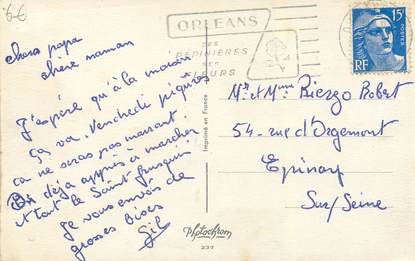 6€
ORLEANS
SES
PEPINIERES
SES
FLEURS
15F
POSTES
RF
chers papa
chère maman
J'espère qu'à la maison
ça va. Vendredi piqûres
ca ne seras pas marrant.
déja appris à marcher
et tout le Saint frusquin
Je vous envois de
grosses bises
Gil
Imprimé en France
Photochrom
237
Mr et Mme Rierzo Robert
54 - rue d'Orgemont
Epinay
Sur/Seine